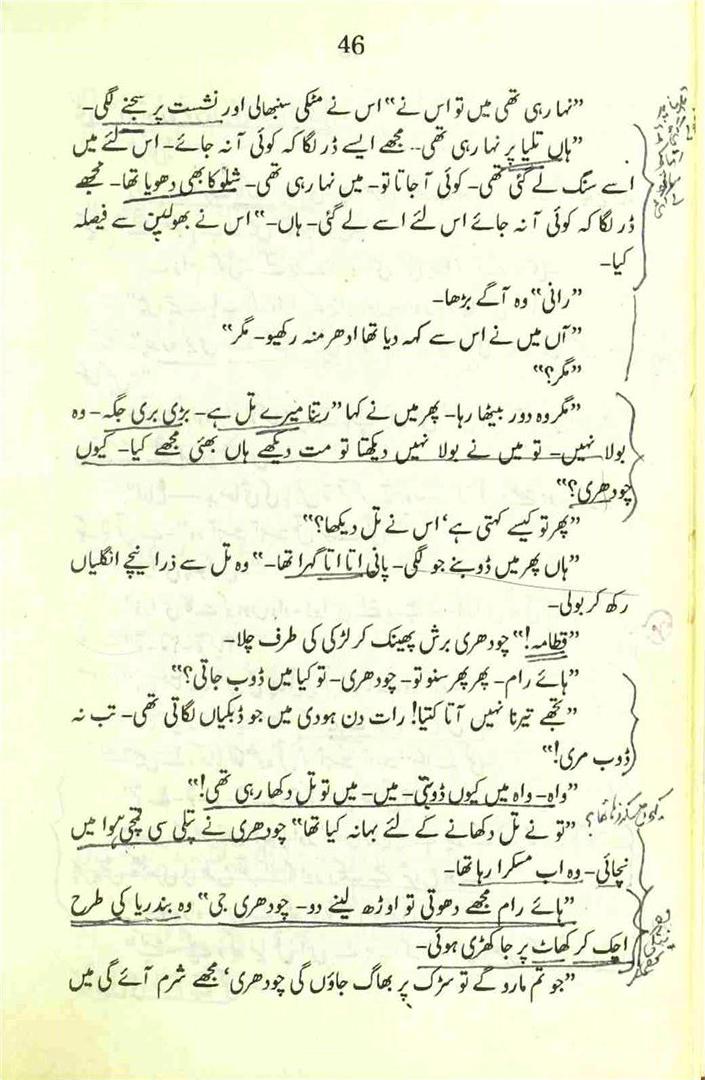 46
"نہا رہی تھی میں تو اس نے" اس نے مٹکی سنبھالی اور نشست پر سجنے لگی۔
"ہاں تلیا پر نہا رہی تھی۔۔ مجھے ایسے ڈر لگا کہ کوئی آ نہ جائے۔ اس لئے میں
اسے سنگ لے گئی تھی۔ کوئی آ جاتا تو۔ میں نہا رہی تھی۔ شلوکا بھی دھویا تھا۔ مجھے
ڈر لگا کہ کوئی آ نہ جائے اس لئے اسے لے گئی۔ ہاں۔" اس نے بھولپن سے فیصلہ
کیا۔
"رانی" وہ آگے بڑھا۔
"آں میں نے اس سے کہہ دیا تھا ادھر منہ رکھیو۔ مگر"
"مگر؟"
"مگر وہ دور بیٹھا رہا۔ پھر میں نے کہا "رتنا میرے تل ہے۔ بڑی بری جگہ۔ وہ
بولا نہیں۔ تو میں نے بولا نہیں دیکھتا تو مت دیکھے ہاں بھئی مجھے کیا۔ کیوں
چودھری؟"
"پھر تو کیسے کہتی ہے' اس نے تل دیکھا؟"
"ہاں پھر میں ڈوبنے جو لگی۔ پانی اتا اتا گہرا تھا۔" وہ تل سے ذرا نیچے انگلیاں
رکھ کر بولی۔
"قطامہ!" چودھری برش پھینک کر لڑکی کی طرف چلا۔
"ہائے رام۔ پھر پھر سنو تو۔ چودھری۔ تو کیا میں ڈوب جاتی؟"
"تجھے تیرنا نہیں آتا کتیا! رات دن ہودی میں جو ڈبکیاں لگاتی تھی۔ تب نہ
ڈوب مری!"
"واہ۔ واہ میں کیوں ڈوبتی۔ میں۔ میں تو تل دکھا رہی تھی!"
"تو نے تل دکھانے کے لئے بہانہ کیا تھا" چودھری نے پتلی سی قمچی ہوا میں
نچائی۔ وہ اب مسکرا رہا تھا۔
"ہائے رام مجھے دھوتی تو اوڑھ لینے دو۔ چودھری جی" وہ بندریا کی طرح
اچک کر کھاٹ پر جا کھڑی ہوئی۔
"جو تم مارو گے تو سڑک پر بھاگ جاؤں گی چودھری' مجھے شرم آئے گی میں